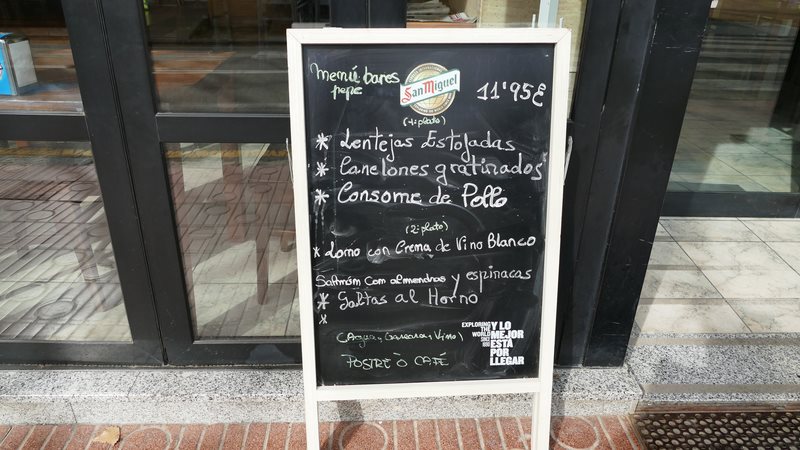 Menú bares
pepe
San Miguel
11'95€
(1:plato)
* Lentejas Estofadas
* Canelones gratinados
* Consome de Pollo
(2:plato)
* Lomo con Crema de Vino Blanco
Salmón Com almendras y espinacas
* Galtas al Horno
*
(Agua, Gaseosa, Vino)
POSTRE Ò CAFÉ
EXPLORING
THE
WORLD
SINCE
1890
Y LO
MEJOR
ESTÁ
POR
LLEGAR